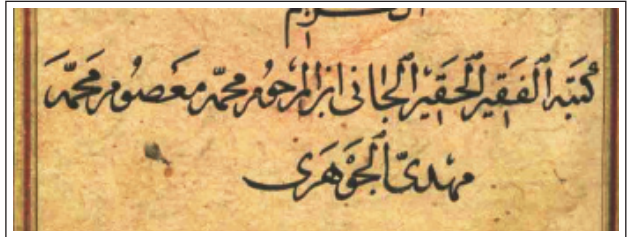 كتبه الفقير الحقير الجاني ابن المرحوم محمد معصوم محمد
مهدي الجوهري